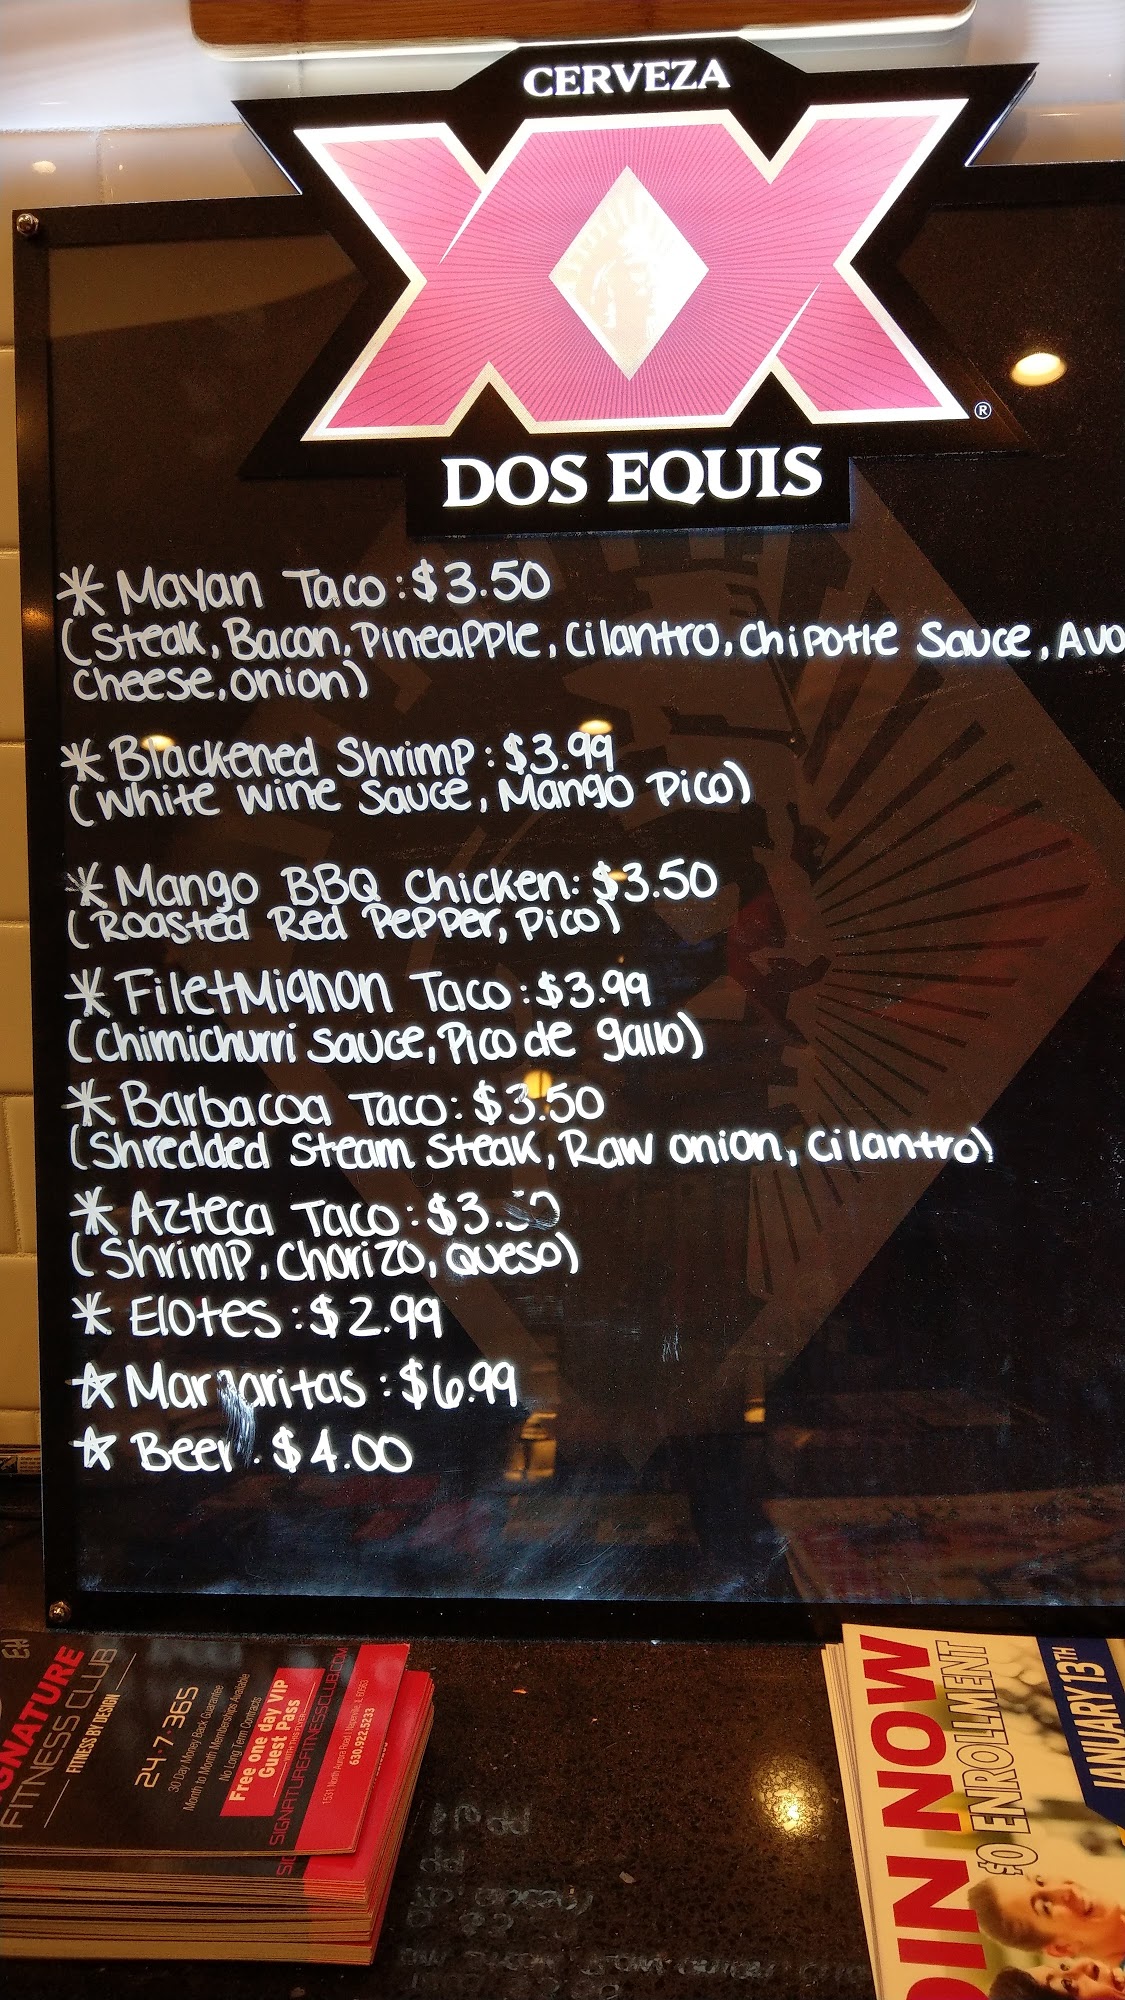 CERVEZA
XX
®
DOS EQUIS
* Mayan Taco : $3.50
(Steak, Bacon, Pineapple, Cilantro, Chipotle Sauce, Avo
Cheese, Onion)
* Blackened Shrimp : $3.99
(White Wine Sauce, Mango Pico)
* Mango BBQ Chicken: $3.50
(Roasted Red Pepper, Pico)
* Filet Mignon Taco : $3.99
(Chimichurri Sauce, Pico de gallo)
* Barbacoa Taco: $3.50
(Shredded Steam Steak, Raw Onion, Cilantro)
* Azteca Taco : $3.50
(Shrimp, Chorizo, Queso)
* Elotes : $2.99
☆ Margaritas : $6.99
☆ Beer : $4.00
GNATURE
FITNESS CLUB
FITNESS BY DESIGN
24·7·365
30 Day Money Back Guarantee
Month to Month Memberships Available
No Long Term Contracts
Free one day VIP
Guest Pass
WITH THIS FLYER
SIGNATUREFITNESSCLUB.COM
1531 North Aurora Road | Naperville, IL 60563
630.922.5233
OIN NOW
$0 ENROLLMENT
JANUARY 13TH